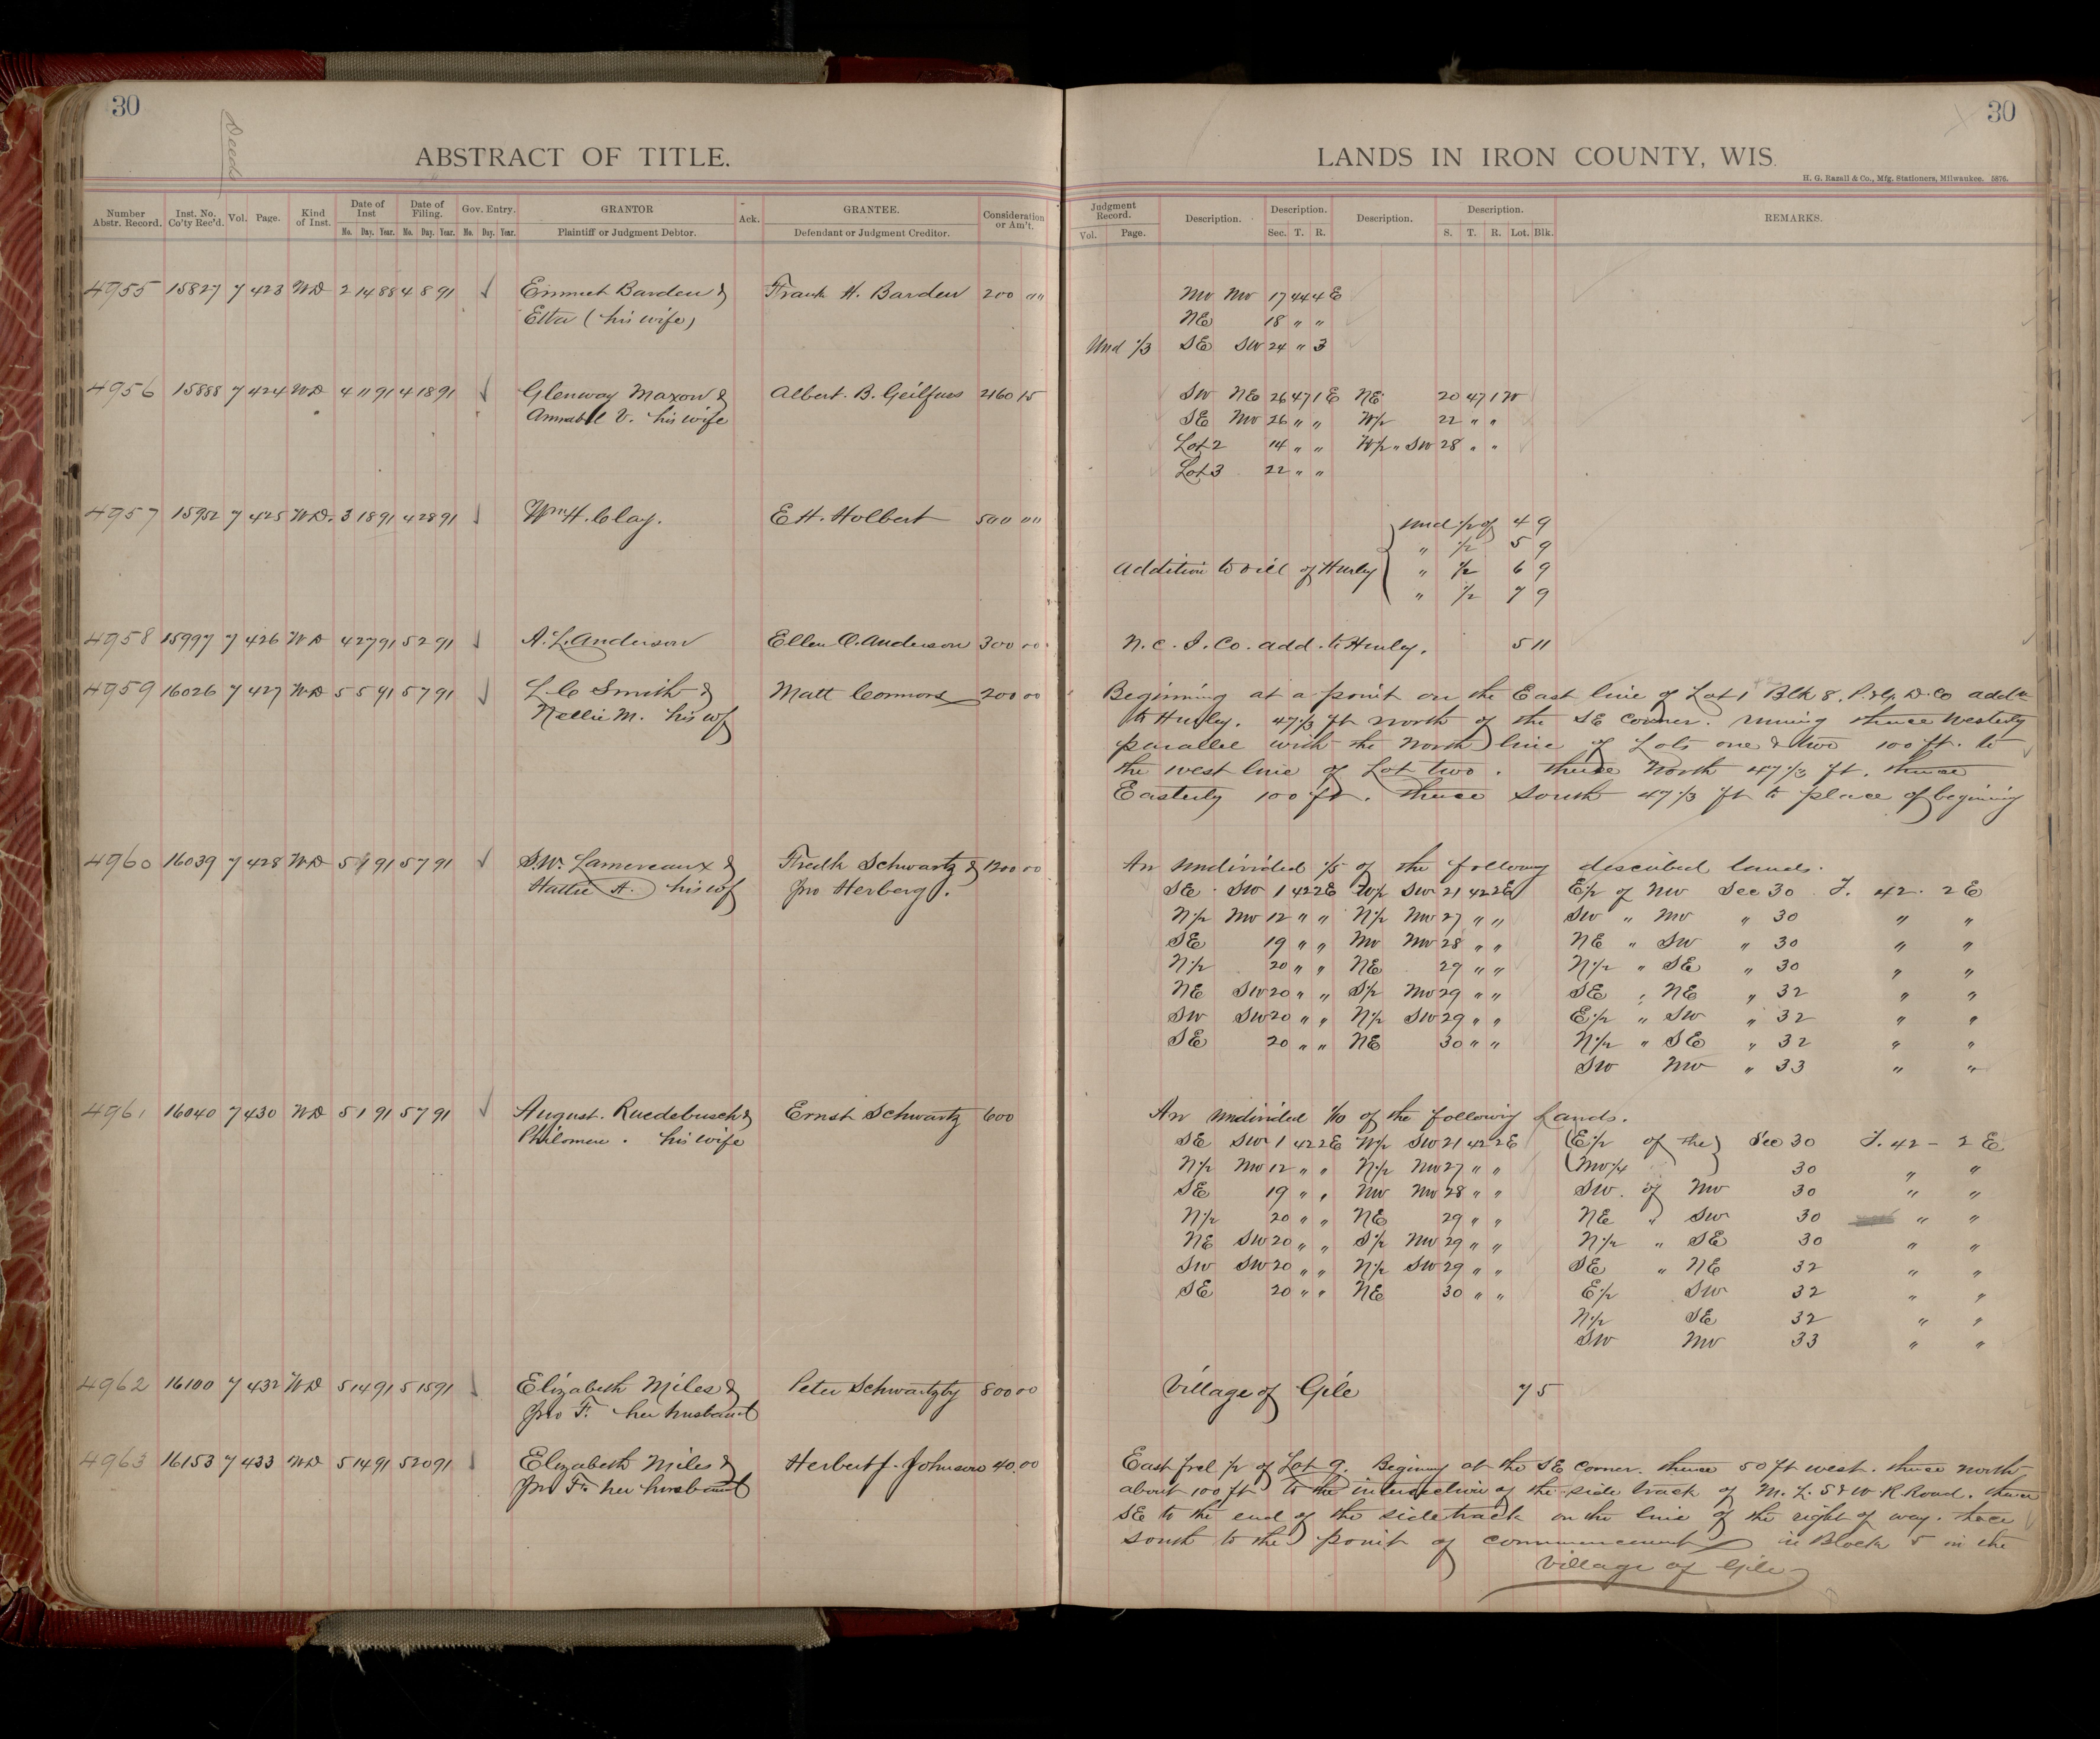 30
Deeds
ABSTRACT OF TITLE.
Number Abstr. Record. Inst. No. Co'ty Rec'd. Vol. Page. Kind of Inst. Date of Inst Mo. Day. Year. Date of Filing. Mo. Day. Year. Gov. Entry. No. Day. Year. GRANTOR Plaintiff or Judgment Debtor. Ack. GRANTEE. Defendant or Judgment Creditor. Consideration or Am't.
4955 15827 7 423 WD 2 14 88 4 8 91 √ Emmet Barden & Frank H. Barden 200 00
Etta (his wife)
4956 15888 7 424 WD 4 11 91 4 18 91 √ Glenway Maxon & Albert. B. Geilfuss 2160 15
Annabel V. his wife
4957 15952 7 425 WD. 3 18 91 4 28 91 √ Wm H. Clay. E H. Holbert 500 00
4958 15997 7 426 WD 4 27 91 5 2 91 √ A. L. Anderson Ellen O. Anderson 300 00
4959 16026 7 427 WD 5 5 91 5 7 91 √ L C Smith & Matt Connors 200 00
Nellie M. his wf
4960 16039 7 428 WD 5 1 91 5 7 91 √ S.W. Lamereaux & Fredk Schwartz & 1200 00
Hattie A. his wf Jno Herberg.
4961 16040 7 430 WD 5 1 91 5 7 91 √ August. Ruedebusch & Ernst Schwartz 600
Philomene. his wife
4962 16100 7 432 WD 5 14 91 5 15 91 √ Elizabeth Miles & Peter Schwartzby 800 00
Jno F. her husband
4963 16153 7 433 WD 5 14 91 5 20 91 Elizabeth Miles & Herbert J. Johnson 40.00
Jno F. her husband
30
LANDS IN IRON COUNTY, WIS.
H. G. Razall & Co., Mfg. Stationers, Milwaukee. 5876.
Judgment Record. Vol. Page. Description. Description. Sec. T. R. Description. Description. S. T. R. Lot. Blk. REMARKS.
NW NW 17 44 4 E
NE 18 " "
Und 1/3 SE SW 24 " 3
SW NE 26 47 1 E NE 20 47 1 W
SE NW 26 " " W½ 22 " "
Lot 2 14 " " W½ " SW 28 " "
Lot 3 22 " "
Und ½ of 4 9
" ½ 5 9
Addition to Vill of Hurley " ½ 6 9
" ½ 7 9
N. C. I. Co. add. to Hurley. 5 11
Beginning at a point on the East line of Lot 1 Blk 8, D. Co addn
to Hurley. 47 1/3 ft north of the SE Corner. running thence Westerly
parallel with the North line of Lots one & two 100 ft. to
the west line of Lot two. thence North 47 1/3 ft. thence
Easterly 100 ft. thence South 47 1/3 ft to place of begining
An undivided 1/5 of the following described lands.
SE SW 1 42 2E W½ SW 21 42 2E E½ of NW Sec 30 T. 42. 2 E
N½ NW 12 " " N½ NW 27 " " SW " NW " 30 " "
SE 19 " " NW NW 28 " " NE " SW " 30 " "
N½ 20 " " NE 29 " " N½ " SE " 30 " "
NE SW 20 " " S½ NW 29 " " SE " NE " 32 " "
SW SW 20 " " N½ SW 29 " " E½ " SW " 32 " "
SE 20 " " NE 30 " " N½ " SE " 32 " "
SW NW " 33 " "
An undivided 1/10 of the following lands.
SE SW 1 42 2E W½ SW 21 42 2E E½ of the Sec 30 T. 42 - 2 E
N½ NW 12 " " N½ NW 27 " " NW¼ 30 " "
SE 19 " " NW NW 28 " " SW. of NW 30 " "
N½ 20 " " NE 29 " " NE " SW 30 " "
NE SW 20 " " S½ NW 29 " " N½ " SE 30 " "
SW SW 20 " " N½ SW 29 " " SE " NE 32 " "
SE 20 " " NE 30 " " E½ SW 32 " "
N½ SE 32 " "
SW NW 33 " "
Village of Gile 7 5
East frel ½ of Lot 9. Begining at the SE Corner. thence 50 ft west. thence north
about 100 ft to the intersection of the side track of M. L. S & W R. Road. thence
SE to the end of the sidetrack on the line of the right of way. thece
south to the point of commencement in Block 5 in the
Village of Gile